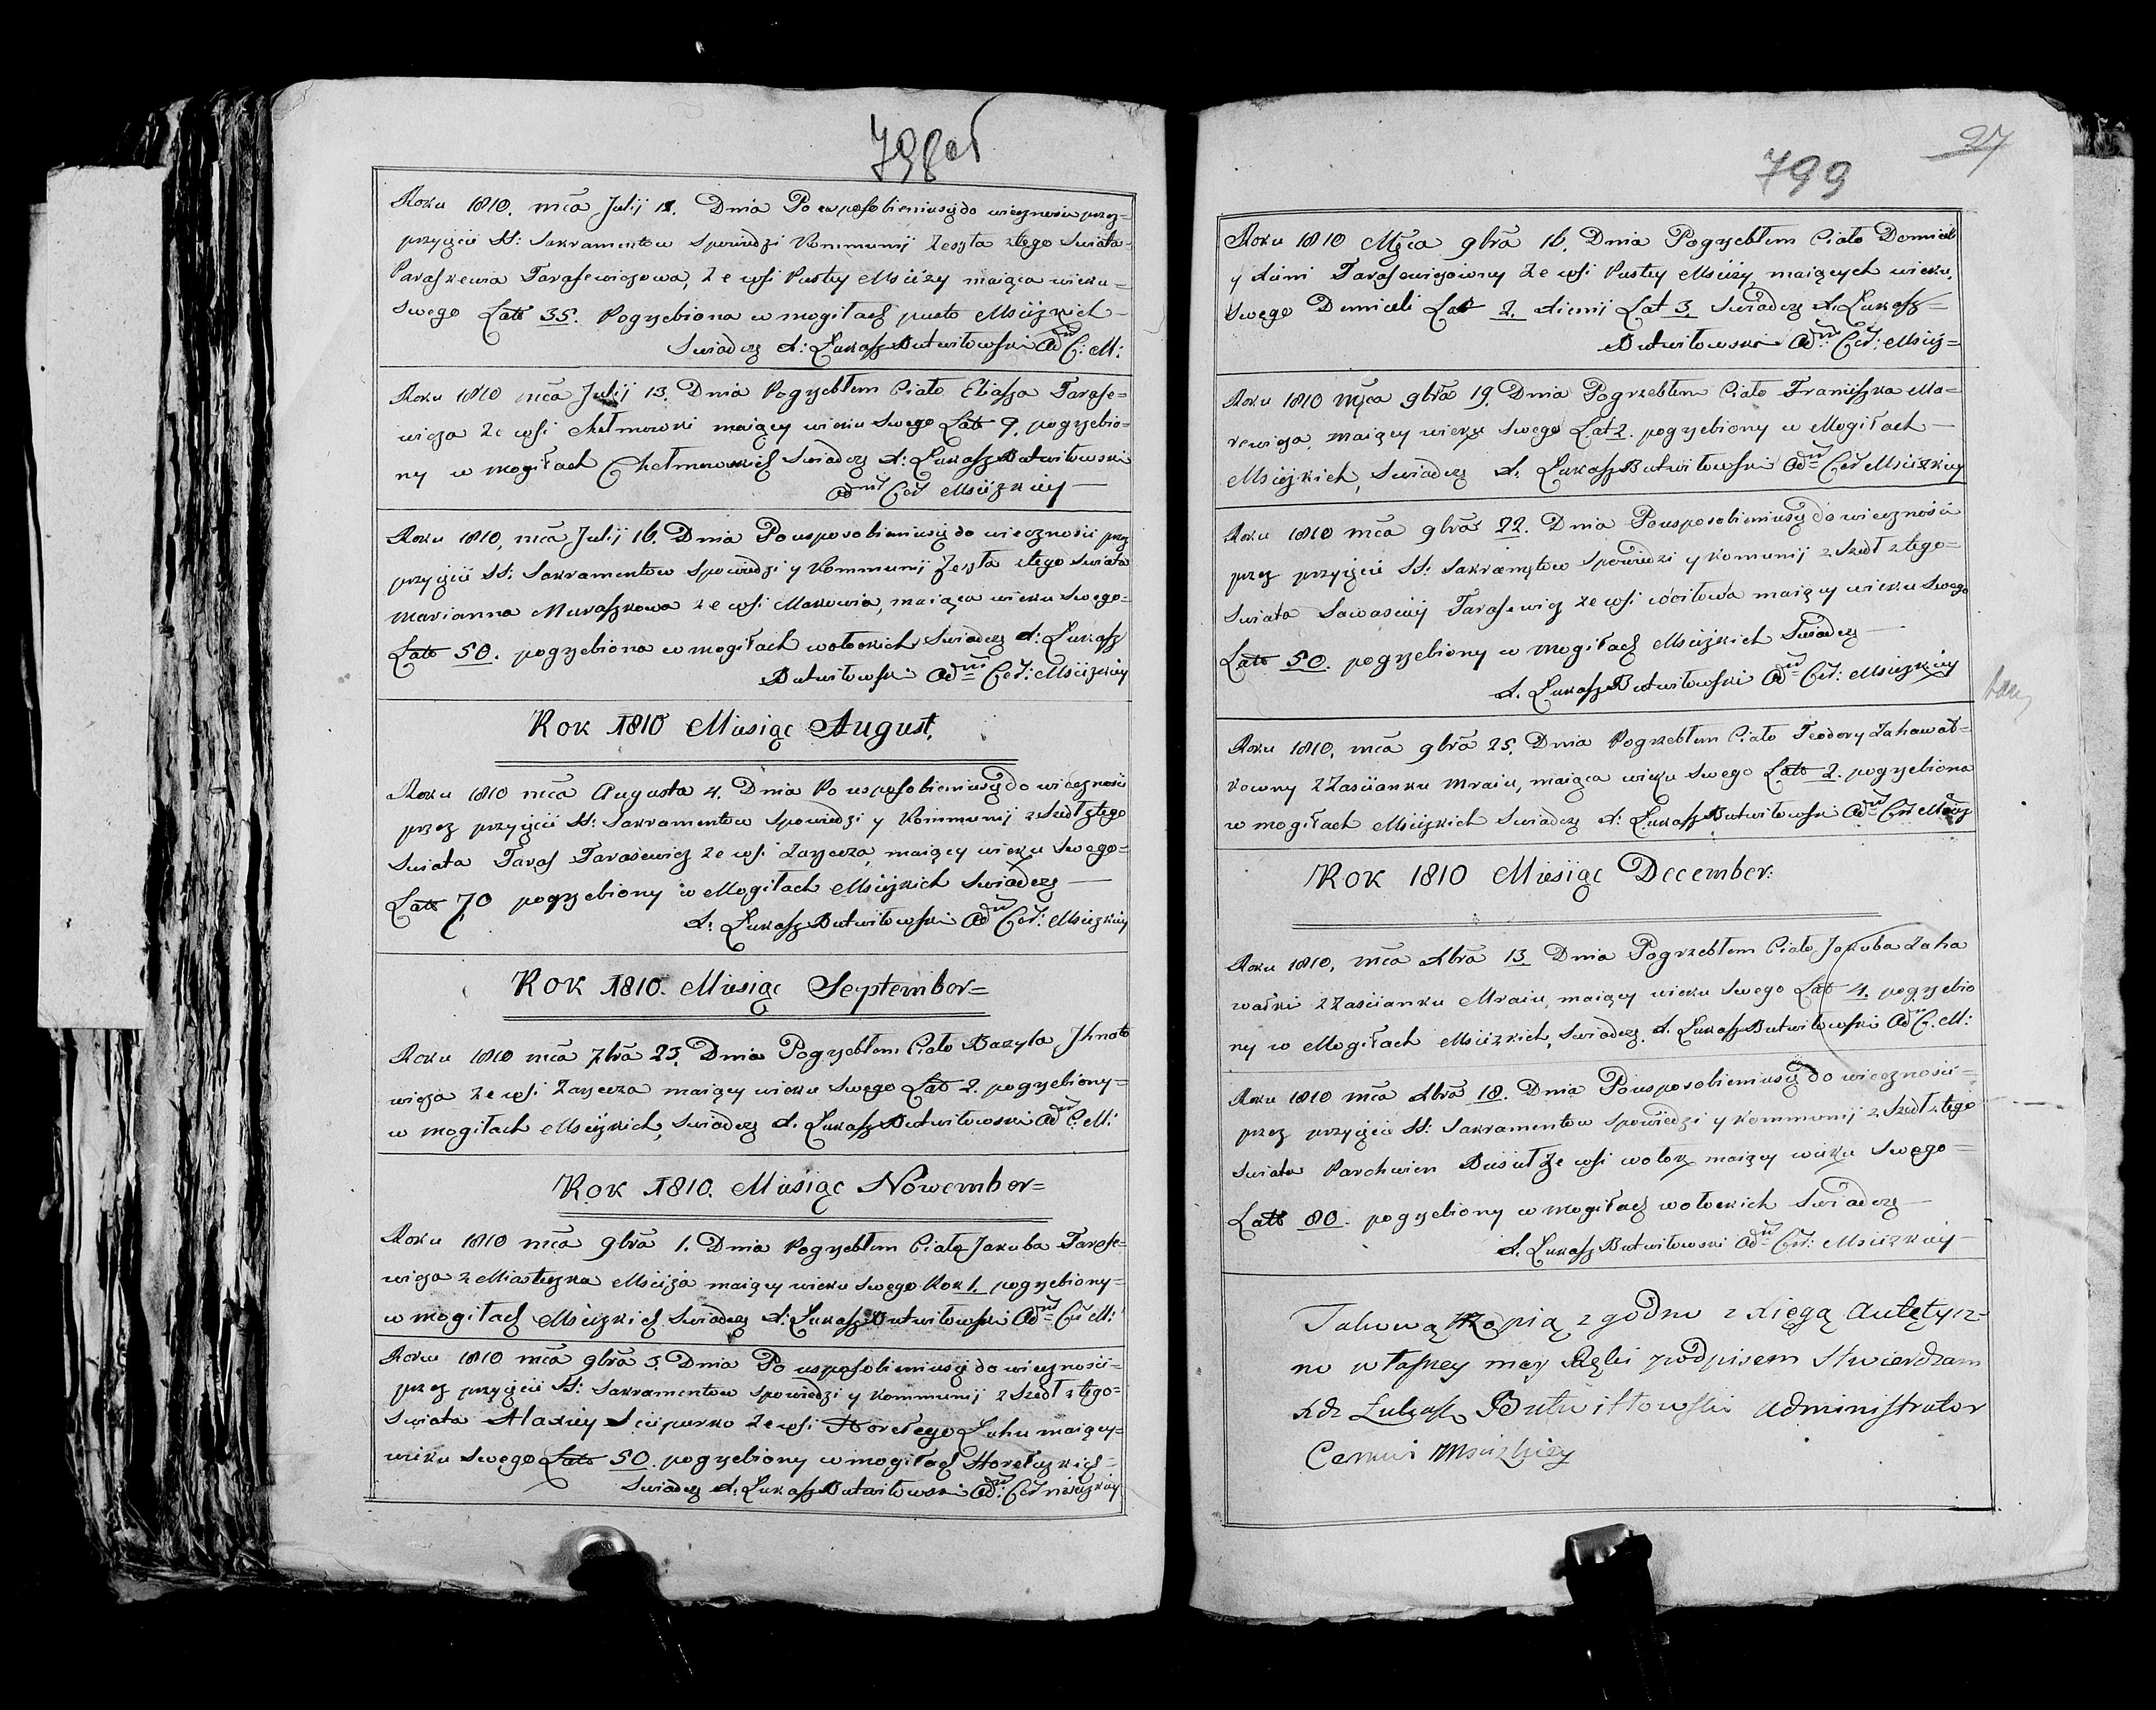 798об
Roku 1810. mca Julij 11. Dnia Po usposobieniusię do wieczności przez=
przyięcie SS: Sakramentow Spowiedzi Kommunij Zeszła ztego Swiata=
Paraskewia Tarasewiczowa, ze wsi Pustey Mscizy maiąca wieku=
Swego Lat 35. Pogrzebiona w mogiłach pusto Mscizkich
Swiadczę X: Łukasz Butwiłowski Adm C: M:
Roku 1810 mca Julij 13. Dnia Pogrzebłem Ciało Eliasza Tarase=
wicza ze wsi Chełmowki maiący wieku Swego Lat 9. pogrzebio=
ny w mogiłach Chełmowskich Swiadczę X: Łukasz Butwiłowski
Adm Cer Mscizkiey
Roku 1810, mca Julij 16. Dnia Po usposobieniusię do wieczności prz
przyięcie SS: Sakramentow Spowiedzi y Kommunij Zeszła ztego Swiata
Marianna Muraszkowa ze wsi Makowia, maiąca wieku Swego=
Lat 50. pogrzebiona w mogiłach wołockich Swiadczę X: Łukasz
Butwiłowski Adm Cer: Mscizkiey
Rok 1810 Miesiąc August,
Roku 1810 mca Augusta 4. Dnia Po usposobieniusię do wieczności
przez przyięcie SS: Sakramentow Spowiedzi y Kommunij zszedł ztego
Swiata Taras Tarasewicz ze wsi Zarzecza, maiący wieku Swego=
Lat 70 pogrzebiony w Mogiłach Mscizkich Swiadczę
X: Łukasz Butwiłowski Adm Cer: Mscizkiey
Rok 1810. Miesiąc September=
Roku 1810 mca 7bra 25. Dnia Pogrzebłem Ciało Bazyla Ihnato
wicza ze wsi Zarzecza maiący wieku Swego Lat 2. pogrzebiony=
w mogiłach Mscizkich, Swiadczę X. Łukasz Butwiłowski Adm C: M:
Rok 1810. Miesiąc Nowember=
Roku 1810 mca 9bra 1. Dnia Pogrzebłem Ciało Jakuba Tarase=
wicza z Miasteczka Msciża maiący wieku Swego Rok 1. pogrzebiony=
w mogiłach Mscizkich Swiadczę X: Łukasz Butwiłowski Adm Cer M:
Roku 1810 mca 9bra 5. Dnia Po usposobieniusię do wieczności=
przez przyięcie SS: Sakramentow Spowiedzi y Kommunij zszedł ztego=
Swiata Alaxiey Sciepurko ze wsi Horełego Łuhu maiący=
wieku Swego Lat 50. pogrzebiony w mogiłach Horełuzkich=
Swiadczę X: Łukasz Butwiłowski Adm: Cer mscizkiey
27
799
Roku 1810 Mca 9bra 16. Dnia Pogrzebłem Ciało Domiceli
y Anni Tarasewiczowny ze wsi Pustey Mscizy, maiących wieku,
Swego Domiceli Lat 2. Annij Lat 3. Swiadczę X. Łukasz=
Butwiłowski Adm Cer: Msciz=
Roku 1810 Mca 9bra 19. Dnia Pogrzebłem Ciało Franciszka Ma=
rewicza, maiący wieku Swego Lat 2. pogrzebiony w Mogiłach
Mscizkich, Swiadczę X. Łukasz Butwiłowski Adm Cer Mscizkiey
Roku 1810 mca 9bra 22. Dnia Pousposobieniusię do wieczności
przez przyięcie SS: Sakramętow Spowiedzi y Komunij zszedł ztego=
Swiata Sawasciey Tarasewicz ze wsi maiący wieku Swego
Lat 50. pogrzebiony w mogiłach Mscizkich Swiadczę
X. Łukasz Butwiłowski Adm Cer: Mscizkiey
Roku 1810. mca 9bra 25. Dnia Pogrzebłem Ciało Teodory Zahował=
kowny z Zascianku Mraiu, maiąca wieku Swego Lat 2. pogrzebiona
w mogiłach Mscizkich Swiadczę X: Łukasz Butwiłowski Adm Cer Msciz
Rok 1810 Miesiąc December:
Roku 1810, mca Xbra 13 Dnia Pogrzebłem Ciało Jakuba Zaha
wałki z Zascianku Mraiu, maiący wieku Swego Lat 4. pogrzebio
ny w Mogiłach Mscizkich, Swiadczę X. Łukasz Butwiłowski Adm C. M:
Roku 1810 mca Xbra 18. Dnia Pousposobieniusię do wieczności=
przez przyięcie SS: Sakramentow Spowiedzi y Kommunij zszedł ztego
Swiata Parchwien Busieł ze wsi wołok maiący wieku Swego=
Lat 80. pogrzebiony w mogiłach wołockich Swiadczę
X. Łukasz Butwiłowski Adm Cer: Mscizkiey
Takową Kopią zgodno z Xięgą Autętycz=
no własney mey Ręki podpisem Stwierdzam
Xdz Łukasz Butwiłłowski Administrator
Cerkwi Mscizkiey